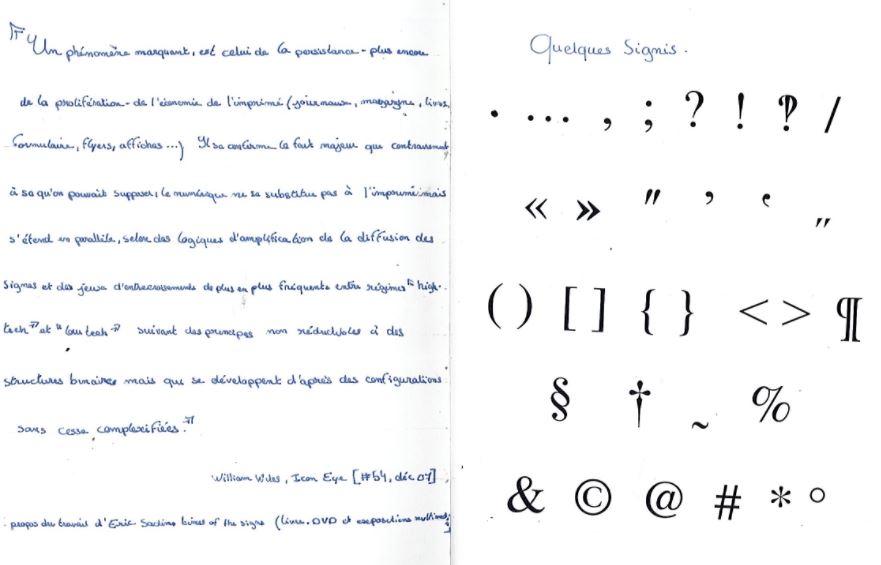 "Un phénomène marquant, est celui de la persistance - plus encore
de la prolifération - de l'économie de l'imprimé (journaux, magazine, livres,
formulaire, flyers, affiches ...) Il se confirme le fait majeur que contrairement
à se qu'on pouvait supposer, le numérique ne se substitue pas à l'imprimé mais
s'étend en parallèle, selon des logiques d'amplification de la diffusion des
signes et des jeux d'entrecroisements de plus en plus fréquents entre régimes "high-
tech" et "low tech" suivant des principes non réductibles à des
structures binaires mais qui se développent d'après des configurations
sans cesse complexifiées."
William Wiles, Icon Eye [#54, déc 07]
propos du travail d'Eric Sadin of the signs (livre, DVD et expositions
Quelques Signis.
. ... , ; ? ! ‽ /
« » " ’ ‛ „
( ) [ ] { } < > ¶
§ † ~ %
& © @ # * °